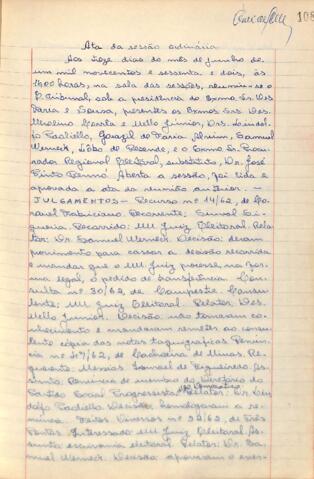 108
Ata da sessão ordinária
Aos treze dias do mês de junho de
um mil novecentos e sessenta e dois, às
horas, na sala das sessões, reuniu-se o
Tribunal, sob a presidência do Exmo Sr. Des
e Souza, presentes os Exmos Srs. Des
e Mello Júnior, Drs. Lindol-
fo Padiello, de Faria Alvim, Samuel
Werneck, Lôbo de Rezende, e o Exmo Sr. Procu-
rador Regional Eleitoral, substituto, Dr. José
Pinto Aberta a sessão, foi lida e
aprovada a ata da reunião anterior. -
JULGAMENTOS - Recurso nº 14/62, de Co-
ronel Fabriciano. Recorrente:
Recorrido: MM Juiz Eleitoral. Rela-
tor: Dr. Samuel Werneck. Decisão: deram
provimento para cassar a decisão recorrida
e mandar que o MM. Juiz processe, na for-
ma legal, o pedido de transferência. Con-
sulta nº 30/62, de Campestre. Consu-
lente: MM Juiz Eleitoral. Relator: Des.
Mello Júnior. Decisão: não tomaram co-
nhecimento e mandaram remeter ao consu-
lente cópia das notas taquigráficas. Renún-
cia nº 47/62, de Cachoeira de Minas. Re-
querente: Messias de Figueiredo. As-
sunto: Renúncia de membro do Diretório do
Partido Social Progressista. Relator: Dr. Lin-
dolfo Padiello. Decisão: homologaram a re-
núncia. Feitos Diversos nº 92/62, de Três
Pontas. Interessado: MM Juiz Eleitoral. As-
sunto: escrivania eleitoral. Relator: Dr. Sa-
muel Werneck. Decisão: aprovaram o exer-